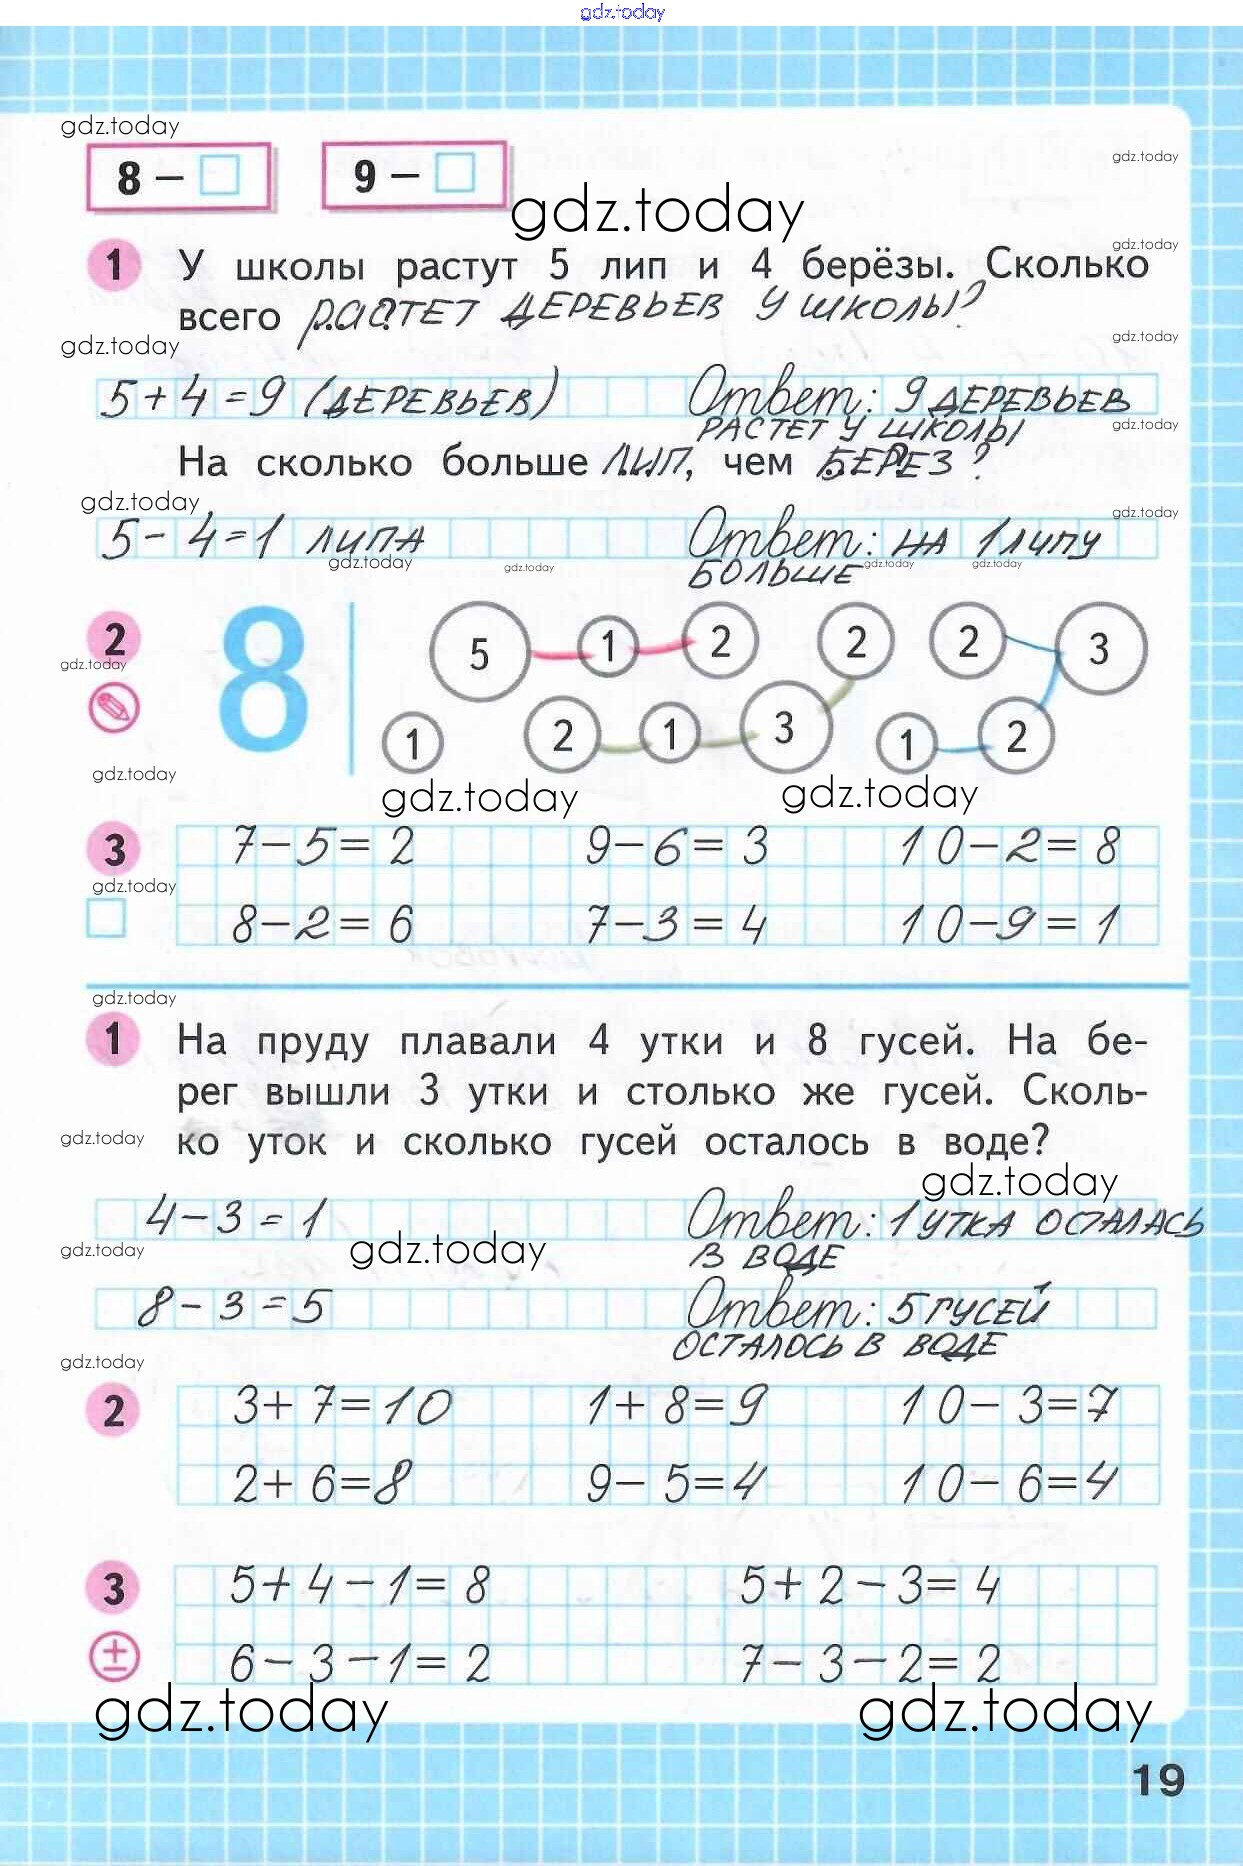 gdz.today
gdz.today
8 – 9 –
gdz.today
gdz.today
1 У школы растут 5 лип и 4 берёзы. Сколько
gdz.today
всего РАСТЕТ ДЕРЕВЬЕВ У ШКОЛЫ?
gdz.today
gdz.today
5+4=9 (ДЕРЕВЬЕВ) Ответ: 9 ДЕРЕВЬЕВ
РАСТЕТ У ШКОЛЫ
gdz.today
На сколько больше ЛИП, чем БЕРЕЗ?
gdz.today
gdz.today
5-4=1 ЛИПА Ответ: НА 1 ЛИПУ
БОЛЬШЕ
gdz.today gdz.today gdz.today gdz.today
2 8 5 1 2 2 2 3
gdz.today
1 2 1 3 1 2
gdz.today
gdz.today gdz.today
3 7–5=2 9–6=3 10–2=8
gdz.today
8–2=6 7–3=4 10–9=1
gdz.today
1 На пруду плавали 4 утки и 8 гусей. На бе-
рег вышли 3 утки и столько же гусей. Сколь-
gdz.today
ко уток и сколько гусей осталось в воде?
gdz.today
4–3=1 Ответ: 1 УТКА ОСТАЛАСЬ
gdz.today gdz.today
В ВОДЕ
8–3=5 Ответ: 5 ГУСЕЙ
ОСТАЛОСЬ В ВОДЕ
gdz.today
2 3+7=10 1+8=9 10–3=7
2+6=8 9–5=4 10–6=4
3 5+4–1=8 5+2–3=4
±
6–3–1=2 7–3–2=2
gdz.today gdz.today
19